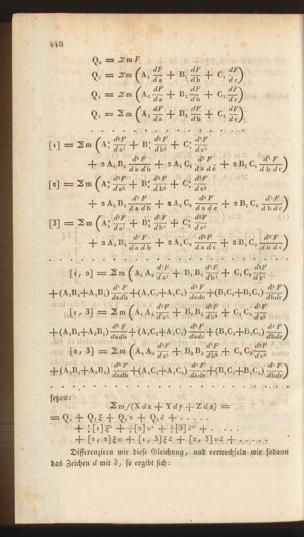 448
Q₀ = ΣmF
Q₁ = Σm(A₁ dF/da + B₁ dF/db + C₁ dF/dc)
Q₂ = Σm(A₂ dF/da + B₂ dF/db + C₂ dF/dc)
Q₃ = Σm(A₃ dF/da + B₃ dF/db + C₃ dF/dc)
. . . . . . . . . . . . . . . . . .
[1] = Σm(A₁² d²F/da² + B₁² d²F/db² + C₁² d²F/dc²
+ 2A₁B₁ d²F/da db + 2A₁C₁ d²F/da dc + 2B₁C₁ d²F/db dc)
[2] = Σm(A₂² d²F/da² + B₂² d²F/db² + C₂² d²F/dc²
+ 2A₂B₂ d²F/da db + 2A₂C₂ d²F/da dc + 2B₂C₂ d²F/db dc)
[3] = Σm(A₃² d²F/da² + B₃² d²F/db² + C₃² d²F/dc²
+ 2A₃B₃ d²F/da db + 2A₃C₃ d²F/da dc + 2B₃C₃ d²F/db dc)
. . . . . . . . . . . . . . . . . .
[1, 2] = Σm(A₁A₂ d²F/da² + B₁B₂ d²F/db² + C₁C₂ d²F/dc²
+(A₁B₂+A₂B₁) d²F/dadb +(A₁C₂+A₂C₁) d²F/dadc +(B₁C₂+B₂C₁) d²F/dbdc)
[1, 3] = Σm(A₁A₃ d²F/da² + B₁B₃ d²F/db² + C₁C₃ d²F/dc²
+(A₁B₃+A₃B₁) d²F/dadb +(A₁C₃+A₃C₁) d²F/dadc +(B₁C₃+B₃C₁) d²F/dbdc)
[2, 3] = Σm(A₂A₃ d²F/da² + B₂B₃ d²F/db² + C₂C₃ d²F/dc²
+(A₂B₃+A₃B₂) d²F/dadb +(A₂C₃+A₃C₂) d²F/dadc +(B₂C₃+B₃C₂) d²F/dbdc)
. . . . . . . . . . . . . . . . . .
setzen:
Σm∫(Xdx + Ydy + Zdz) =
= Q₀ + Q₁ξ + Q₂υ + Q₃ε + . . . . .
+ ½[1]ξ² + ½[2]υ² + ½[3]ε² + . . . . .
+ [1, 2]ξυ + [1, 3]ξε + [2, 3]υε + . . . . .
Differenziren wir diese Gleichung, und verwechseln wir sodann
das Zeichen d mit δ, so ergibt sich: